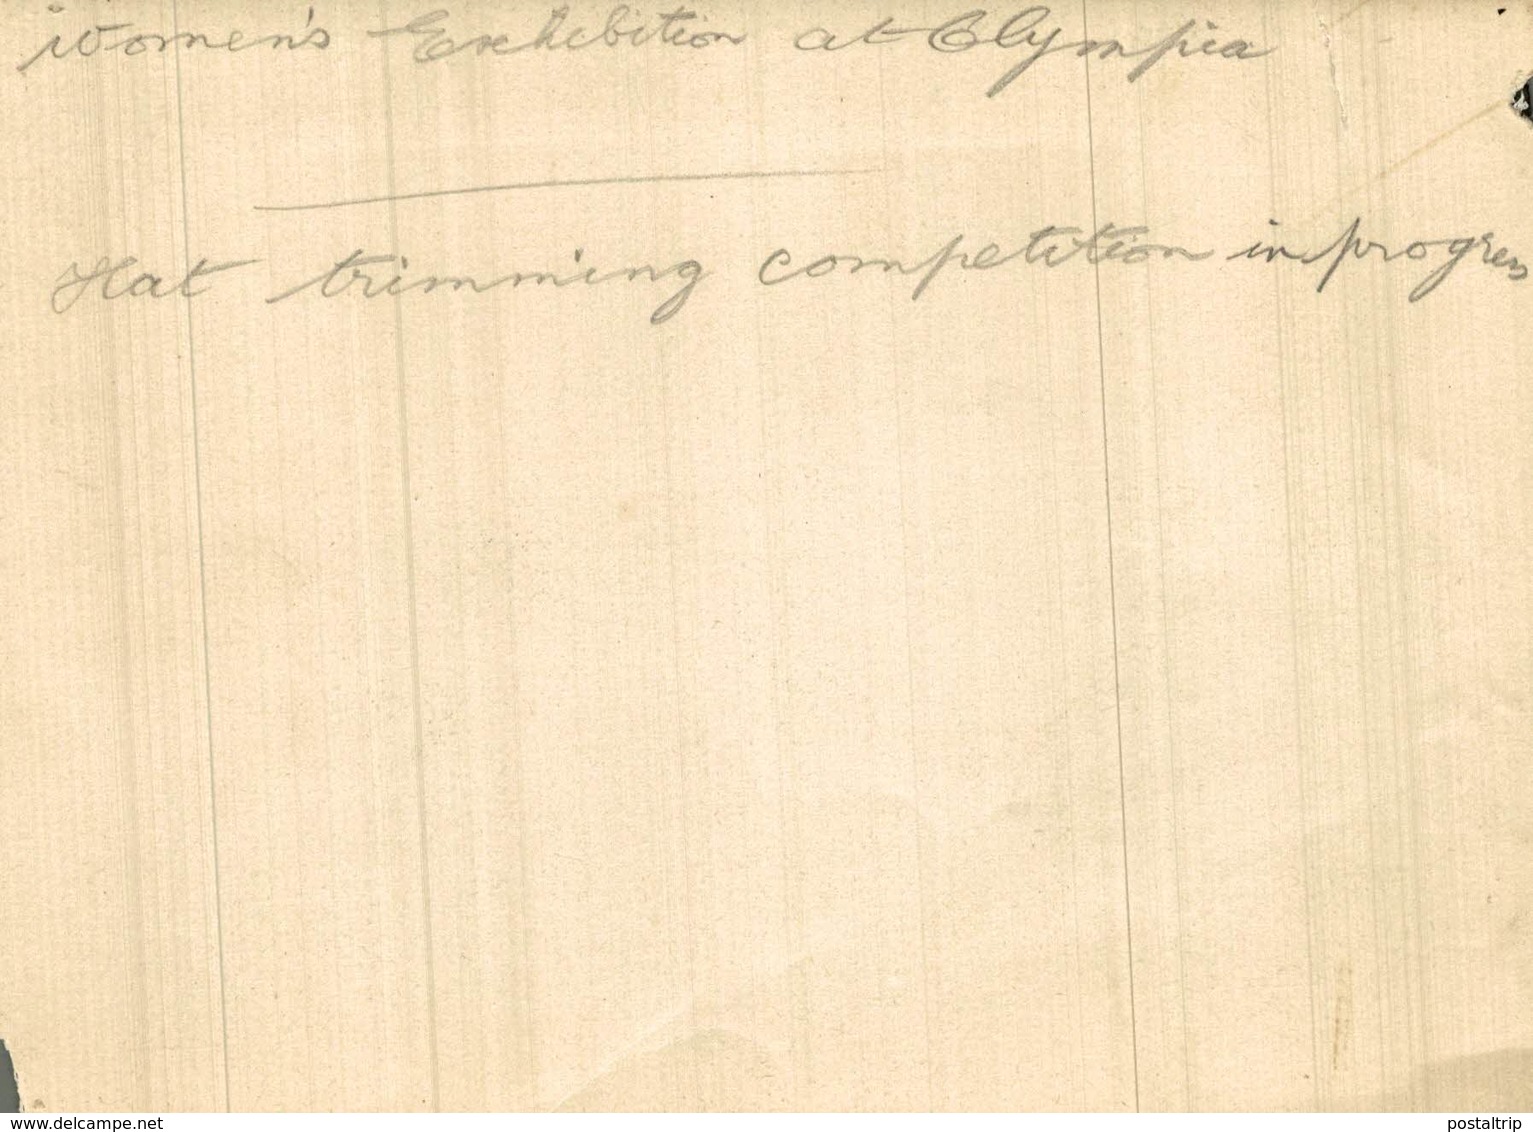 Women's Exhibition at Olympia
Hat trimming competition in progress
www.delcampe.net
postaltrip